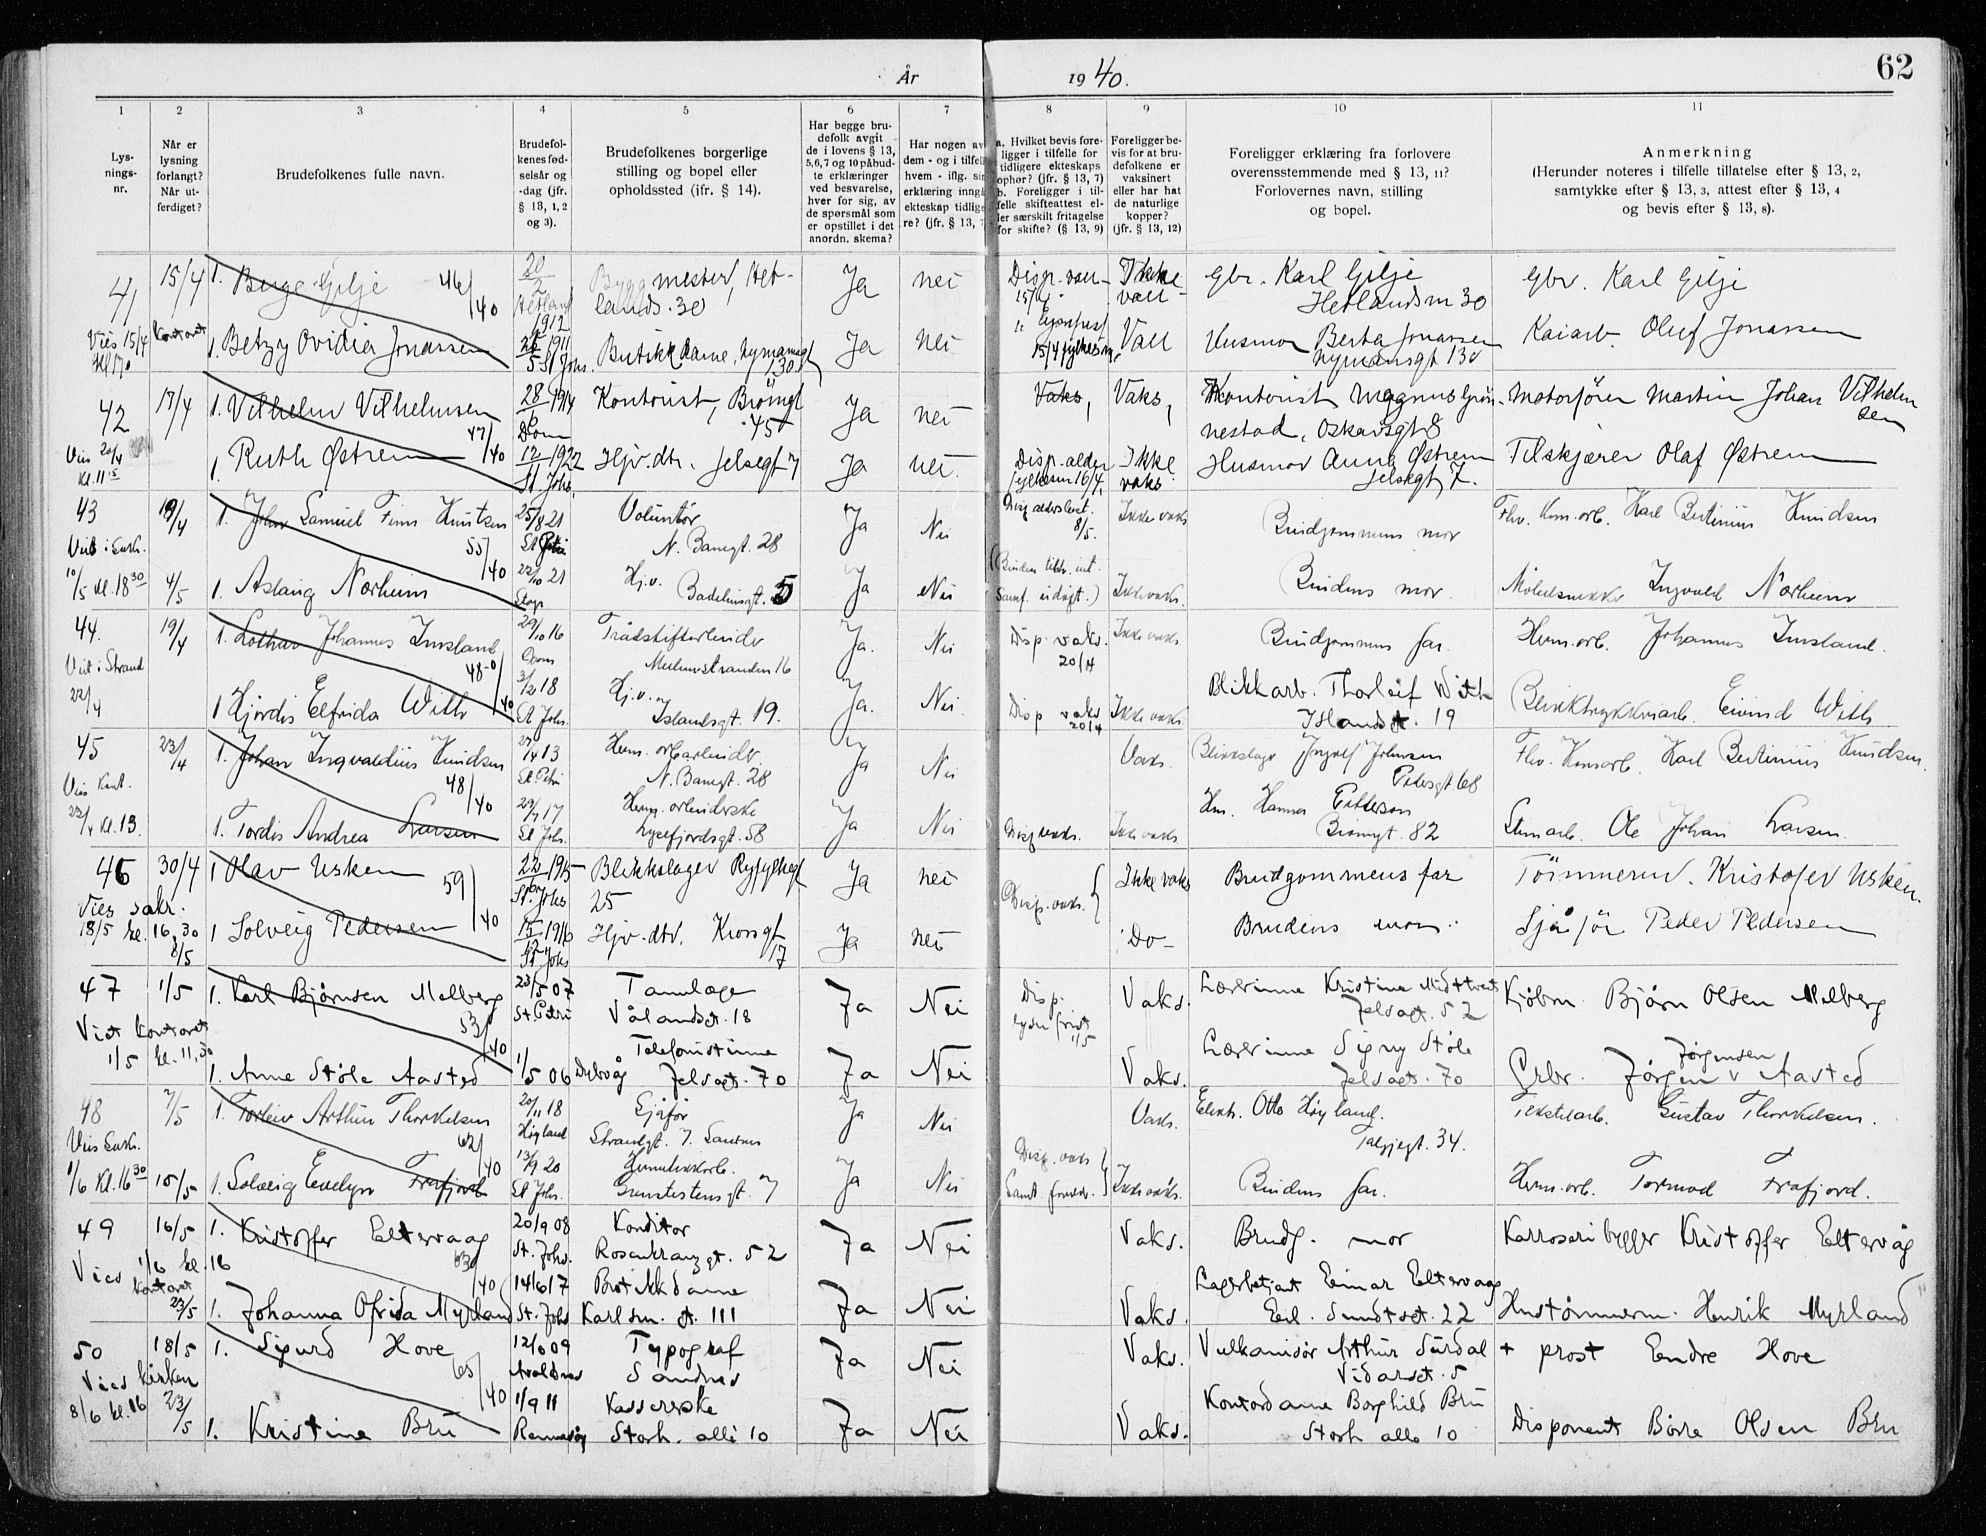 År 1940.
62
1 2 3 4 5 6 7 8 9 10 11
Lys-
nings-
nr.
Når er
lysning
forlangt?
Når ut-
ferdiget?
Brudefolkenes fulle navn.
Brudefol-
kenes fød-
selsår og
-dag (jfr.
§ 13, 1, 2
og 3).
Brudefolkenes borgerlige
stilling og bopel eller
opholdssted (ifr. § 14).
Har begge bru-
defolk avgit
de i lovens § 13,
5,6,7 og 10 påbud-
te erklæringer
ved besvarelse,
hver for sig, av
de spørsmål som
er opstillet i det
anordn. skema?
Har nogen av
dem - og i tilfel
hvem - iflg. si
erklæring inngå
ekteskap tidlige
re? (jfr. § 13, 7
a. Hvilket bevis fore-
ligger i tilfelle for
tidligere ekteskaps
ophør? (jfr. § 13, 7)
b. Foreligger i til-
felle skifteattest el-
ler særskilt fritagelse
for skifte? (§ 13, 9)
Foreligger be-
vis for at bru-
defolkene er
vaksinert
eller har hat
de naturlige
kopper?
(jfr. § 13, 12)
Foreligger erklæring fra forlovere
overensstemmende med § 13, 11?
Forlovernes navn, stilling
og bopel.
Anmerkning
(Herunder noteres i tilfelle tillatelse efter § 13, 2,
samtykke efter § 13, 3, attest efter § 13, 4
og bevis efter § 13, 8).
41 15/4 1. Berge Gilje 46/40 20/2 Hetland 1912 Byggmester, Het-
lands. 30 Ja nei Disp. vau- 15/4 Ikke vau- Gbr. Karl Gilje
Hetlandsm 30 Gbr. Karl Gilje
Vies 15/4 Kontoret
1. Betzy Ovidia Jonassen 1911 St Johs. Butikkdame, Nymansgt
130 Ja nei 15/4 fylkesm. Vau Husmor Berta Jonassen
Nymansgt 130 Kaiarb. Oluf Jonassen
42 17/4 1. Vilhelm Vilhelmsen 47/40 28/6 1914 Dom Kontorist, Brömgt
45 Ja nei Vaks, Vaks, Kontorist Magnus Grön-
nestad, Oskarsgt 8 Motorfører Martin Johan Vilhelm
sen
Vies 20/4 kl. 11 15
1. Ruth Østrem 12 1922 St Johs. Hjv. dtr. Jelsegt 7 Ja nei. Disp. alder
fylkesm 16/4, Ikke vaks Husmor Anna Østrem
Jelsegt, 7. Filskjærer Olaf Østrem
43 19/4 1. John Samuel Finn Knutsen 55/40 25/8 21 St Petri Voluntør
N. Banegt. 28 Ja Nei 8/5. Ikke vaks Brudgommens mor Fhv. Hm. arb. Karl Bertinius Knudsen
10/5 kl. 18 30 4/5 1. Aslaug Norheim 22/10 21 Hj.v.
Badehusgt. 5 Ja Nei Ikke vaks. Brudens mor. Ingvald Norheim
44. 19/4 1. Lothar Johannes Imsland 48-0/40 29/10 16 Dom Trådstifterbeider
Mullerstranden 16 Ja. Nei Disp. vaks. 20/4 Ikke vaks Brudgommens far. Herm. arb. Johannes Imsland.
Viet i Strand
22/4
1 Hjördis Elfrida With 3/2 18 St Johs. Hj.v.
Islandsgt. 19. Ja. Nei. Disp vaks 20/4 Ikke vaks Blikkarb. Thorleif With
Islandsgt. 19 Blikktrykkerarb. Eivind With
45 23/4 1. Johan Ingvaldius Knudsen 48/40 27/4 13 St Petri Herm. arbeider
N. Banegt. 28 Ja Nei Vaks. Blikkslager Ingolf Johnsen
Pedersgt 68 Fhv. Hmarb. Karl Bertinius Knudsen.
Vies Kont.
23/4 kl. 13.
1. Tordis Andrea Larsen 29/7 17 St Johs. Herm. arbeiderske
Lysefjordsgt. 58 Ja Nei Disp vaks. Ikke vaks. Hm. Hanna Pettersen
Brömgt. 82 Stenarb. Ole Johan Larsen.
46 30/4 1 Olav Usken 59/40 22 1915 St. Johs Blikkslager Ryfylkegt
25 Ja nei Disp. vaks. Ikke vaks Brudgommens far Tömmerm. Kristofer Usken.
Vies sakr.
18/5 kl. 16,30
8/5 1 Solveig Pedersen 15/12 1916 St Johs Hjv. dtr. Krossgt
17 Ja nei Do- Brudens mor. Sjåfør Peder Pedersen
47 1/5 1. Karl Bjørnsen Melberg 53/40 23/5 07 St. Petri Tannlæge
Vålandsgt. 18 Ja Nei Disp.
lysn frist
1/5 Vaks. Lærerinne Kristine Midttveit
Jelsagt. 52 Kjøbm. Bjørn Olsen Melberg
Viet Kontoret
1/5 kl. 11,30
1. Anne Støle Aasted 1/5 06 Telefonistinne
Jelsagt. 70 Ja Nei Vaks. Lærerinne Signy Støle
Jelsagt. 70 Grbr. Jørgen Jørgensen Aasted
48 7/5 1. Torleiv Arthur Thorkelsen 62/40 20/11 18 Høyland Sjåfør
Strandgt. 7. Sandnes Ja Nei Vaks. Elektr. Otto Høyland.
Talgjegt. 34. Tekstilarb. Gustav Thorkelsen.
1/6 Kl. 16 30 15/5 1. Solveig Evelyn Frafjord 13/9 20 St Johs. Hermetikkarb.
Gunsteinsgt. 7 Ja Nei Disp. vaks Ikke vaks. Brudens far. Herm. arb. Tormod Frafjord.
49 16/5 1. Kristoffer Eltervaag 63/40 20/9 08 St. Johs. Konditor
Rosenkranzgt. 52 Ja Nei Vaks. Brudg. mor Karrosseribygger Kristoffer Eltervåg
Vies 1/6 kl. 16
Kontoret
23/5 1. Johanna Ofrida Myrland 14/6 17 St. Johs Butikkdame
Karlsm. gt. 111 Ja Nei Vaks. Lagerbetjent Einar Eltervaag
Eil. Sundtsgt. 22 Hustømmerm. Henrik Myrland
50 18/5 1. Sigurd Hove 65/40 12/6 09 Avaldsnes Typograf
Sandnes Ja Nei Vaks. Vulkanisør Arthur Surdal
Vidarsgt. 5 + prost Endre Hove
Vies Kirken
8/6 kl. 16 23/5
1. Kristine Bru 1/9 11 Rennesøy Kassererske
Storh. alle 10 Ja Nei Vaks. Kontordame Borghild Bru
Storh alle 10 Disponent Børre Olsen Bru